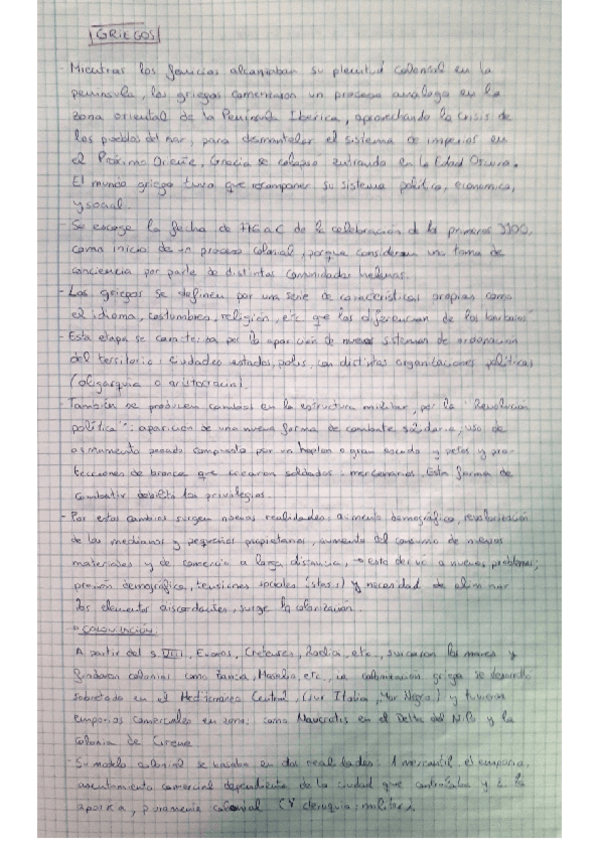 GRIEGOS
- Mientras los fenicios alcanzaban su plenitud colonial en la
península, los griegos comenzaron un proceso análogo en la
zona oriental de la Península Ibérica, aprovechando la crisis de
los pueblos del mar, para desmantelar el sistema de imperios en
el Próximo Oriente, Grecia se colapsó entrando en la Edad Oscura.
El mundo griego tuvo que recomponer su sistema político, económico,
y social.
- Se escoge la fecha de 776 a.C de la celebración de los primeros JJOO,
como inicio de un proceso colonial, porque consideran una toma de
conciencia por parte de distintas comunidades helenas.
- Los griegos se definen por una serie de características propias como
el idioma, costumbres, religión, etc que las diferencian de los barbaros
- Esta etapa se caracteriza por la aparición de nuevos sistemas de ordenación
del territorio: ciudades estados, polis, con distintas organizaciones políticas
(oligarquía o aristocracia).
- También se producen cambios en la estructura militar, por la "Revolución
política": aparición de una nueva forma de combate solidaria, uso de
armamento pesado compuesto por un hoplon o gran escudo y petos y pro-
tecciones de bronce que crearon soldados mercenarios. Esta forma de
combatir debilitó los privilegios.
- Por estos cambios surgen nuevas realidades: aumento demográfico, revalorización
de los medianos y pequeños propietarios, aumento del consumo de nuevos
materiales y de comercio a larga distancia, → Esto derivó a nuevos problemas;
presión demográfica, tensiones sociales (stasis) y necesidad de eliminar
los elementos discordantes, surge la colonización.
→ COLONIZACIÓN
A partir del s. VIII, Eubeos, Cretenses, Rodia, etc, surcaron los mares y
fundaron colonias como Zancle, Masalia, etc, la colonización griega se desarrolló
sobretodo en el Mediterráneo Central, (Sur Italia, Mar Negro) y tuvieron
emporios comerciales en zonas como Naucratis en el Delta del Nilo y la
colonia de Cirene
- Su modelo colonial se basaba en dos realidades: 1 mercantil, el emporio,
asentamiento comercial dependiente de la ciudad que controlaba y 2. la
apoikia, puramente colonial (y cleruquia: militar).